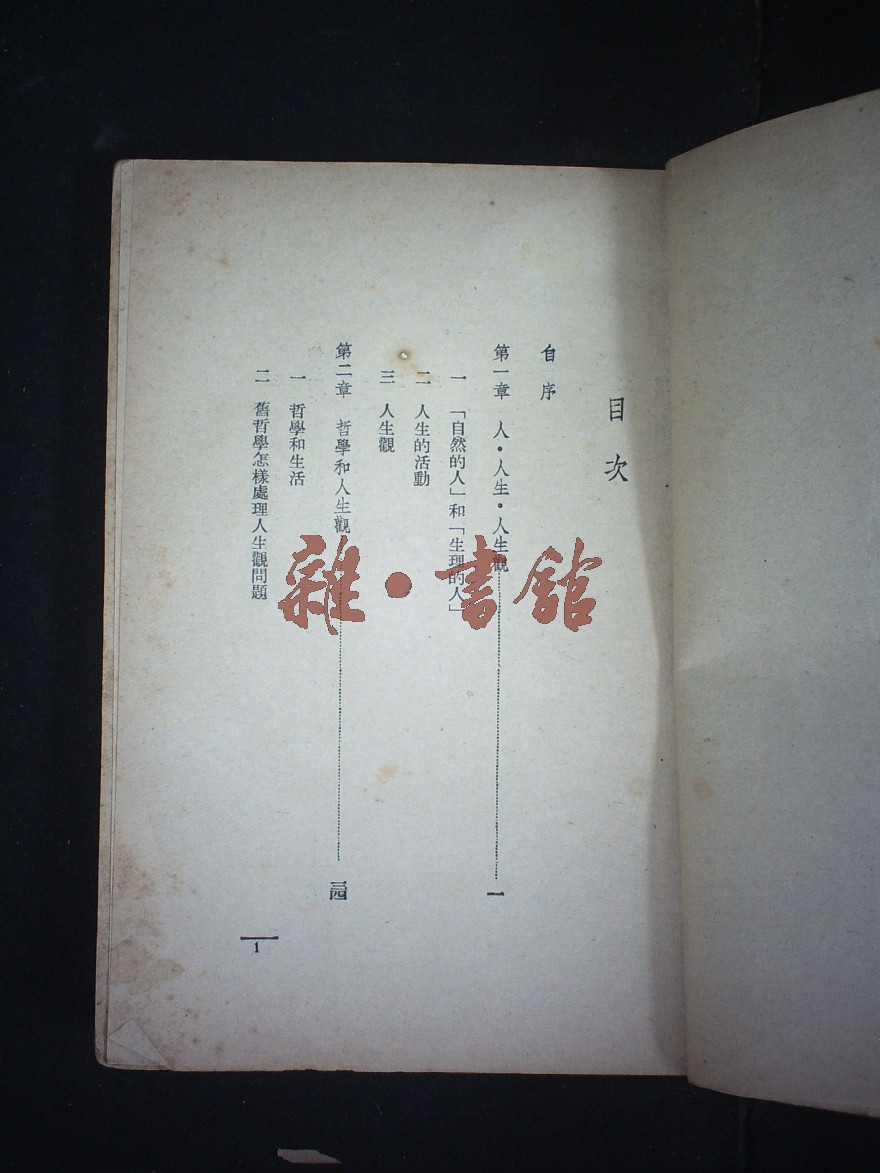 目次
自序
第一章 人·人生·人生觀 一
一 「自然的人」和「生理的人」
二 人生的活動
三 人生觀
第二章 哲學和人生觀 三四
一 哲學和生活
二 舊哲學怎樣處理人生觀問題
1
雜·書館